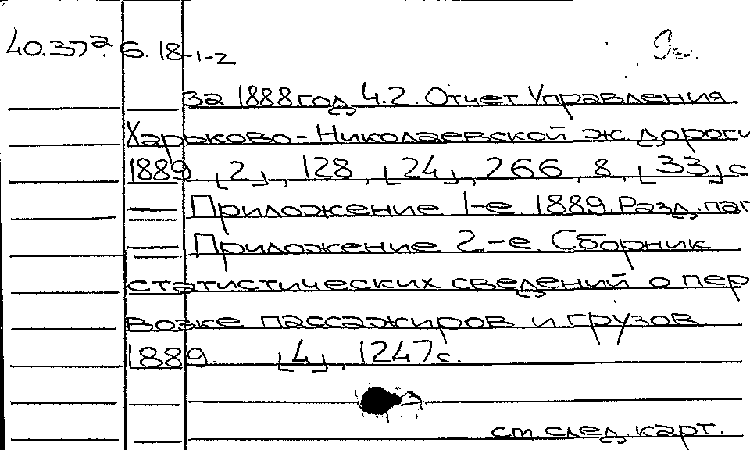 40.37² 6.18-1-2
За 1888 год. Ч.2. Отчет Управления
Харьково-Николаевской ж. дороги
1889 [2], 128, [24], 266, 8, [33] с
— Приложение 1-е. 1889. Разд. паг
— Приложение 2-е. Сборник
статистических сведений о пер
возке пассажиров и грузов
1889. [4], 1247 с.
см. след. карт.